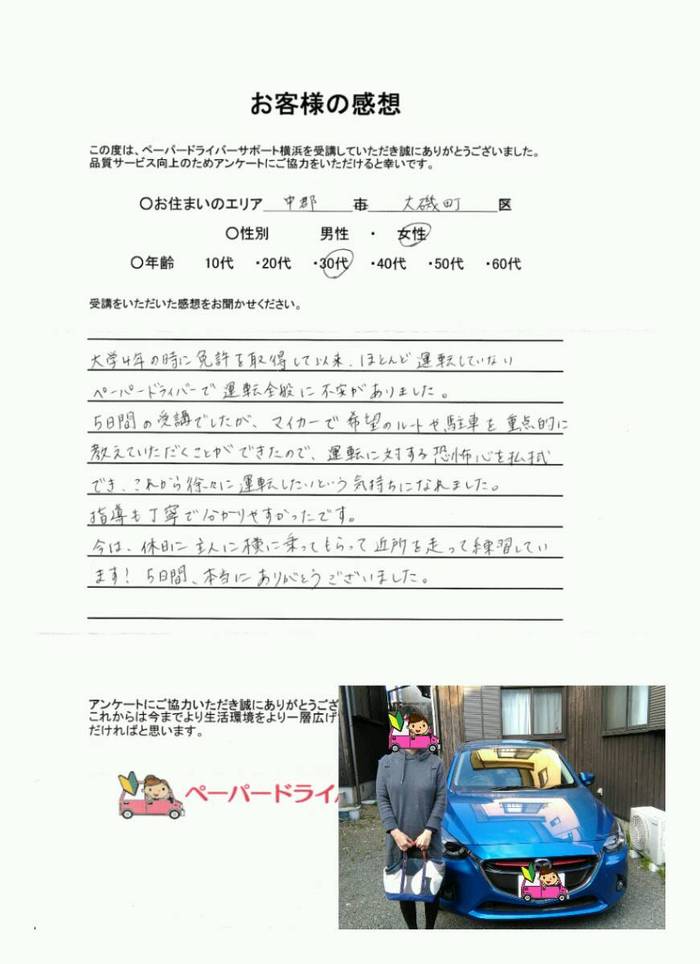 お客様の感想
この度は、ペーパードライバーサポート横浜を受講していただき誠にありがとうございました。
品質サービス向上のためアンケートにご協力をいただけると幸いです。
〇お住まいのエリア 中郡 市 大磯町 区
〇性別 男性 ・ 女性
〇年齢 10代 ・20代 ・30代 ・40代 ・50代 ・60代
受講をいただいた感想をお聞かせください。
大学4年の時に免許を取得して以来、ほとんど運転していない
ペーパードライバーで運転全般に不安がありました。
5日間の受講でしたが、マイカーで希望のルートや駐車を重点的に
教えていただくことができたので、運転に対する恐怖心を払拭
でき、これから徐々に運転したいという気持ちになれました。
指導も丁寧で分かりやすかったです。
今は、休日に主人に横に乗ってもらって近所を走って練習してい
ます！5日間、本当にありがとうございました。
アンケートにご協力いただき誠にありがとうござ
これからは今までより生活環境をより一層広げ
だければと思います。
ペーパードライ